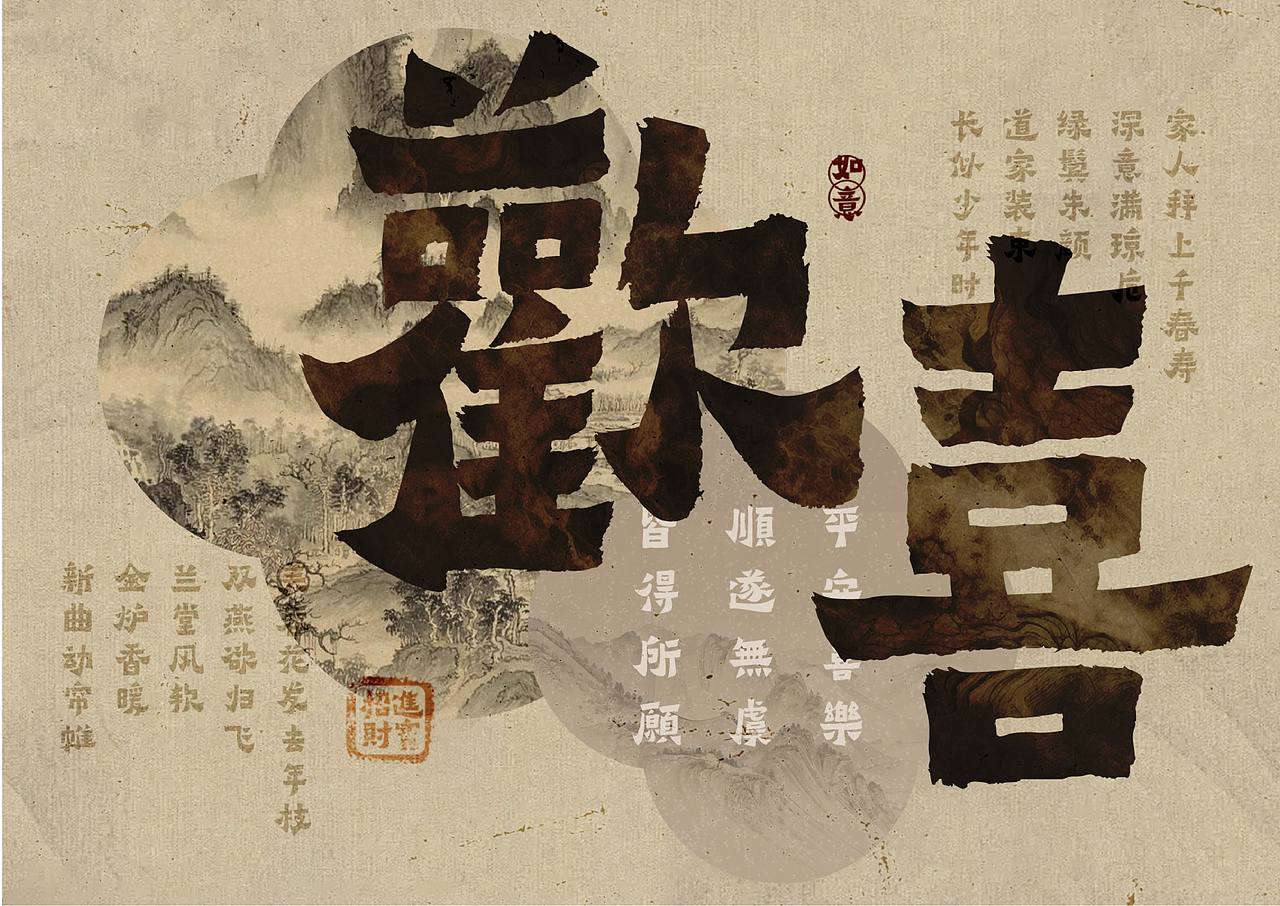 歡喜
如意
家人拜上千春寿
深意满琼卮
绿鬓朱颜
道家装束
长似少年时
平安喜樂
順遂無虞
皆得所願
花发去年枝
双燕欲归飞
兰堂风软
金炉香暖
新曲动帘帷
招財
進寶